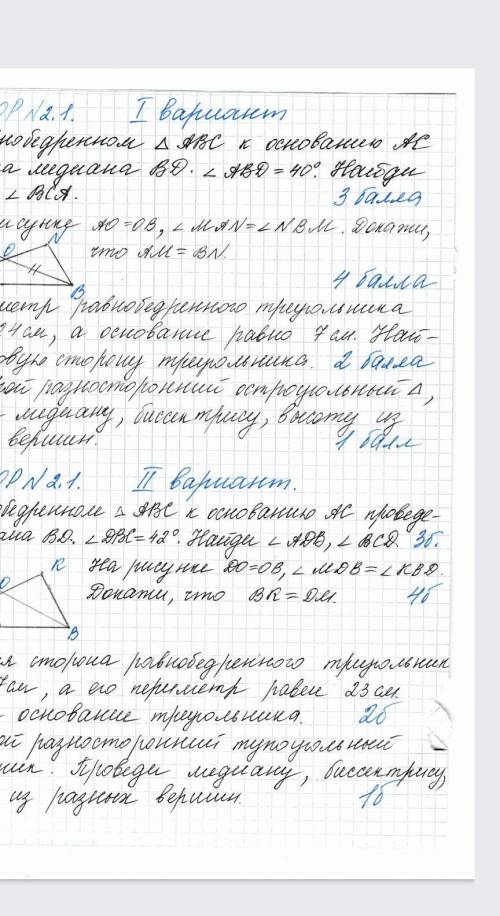 ОР №2.1. I вариант
нобедренном △ ABC к основанию AC
на медиана BD. ∠ABD = 40°. Найди
∠ BCA. 3 балла
исунке AO = OB, ∠MAN = ∠NBM. Докажи,
O N что AM = BN.
B 4 балла
метр равнобедренного треугольника
24 см, а основание равно 7 см. Най-
овую сторону треугольника. 2 балла
ой разносторонний остроугольный △,
медиану, биссектрису, высоту из
вершин. 1 балл
ОР №2.1. II вариант.
обедренном △ ABC к основанию AC проведе-
ана BD. ∠DBC = 42°. Найди ∠ADB, ∠BCD. 3б.
K На рисунке DO = OB, ∠MDB = ∠KBD.
O Докажи, что BK = DM. 4б
B
я сторона равнобедренного треугольник
7 см, а его периметр равен 23 см.
основание треугольника. 2б
ой разносторонний тупоугольный
ник. Проведи медиану, биссектрису,
из разных вершин. 1б